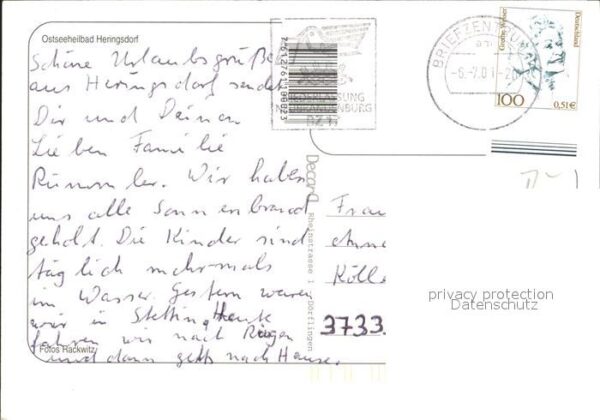 Ostseeheilbad Heringsdorf
Schöne Urlaubsgrüße
aus Heringsdorf sendet
Dir und Deinen
Lieben Familie
Rümmler. Wir haben
uns alle Sonnenbrand
geholt. Die Kinder sind
täglich mehrmals
im Wasser. Gestern waren
wir in Stettin, Heute
fahren wir nach Rügen
und dann gehts nach Hause.
Fotos Rackwitz
NIEDERLASSUNG
NEUBRANDENBURG
BZ 17
BRIEFZENTRUM
-6.-7.01-20
Gräfin
Deutschland
100
0,51€
Decora
Rheinstrasse 1
Frau
Anne
Kölle
3733
privacy protection
Datenschutz